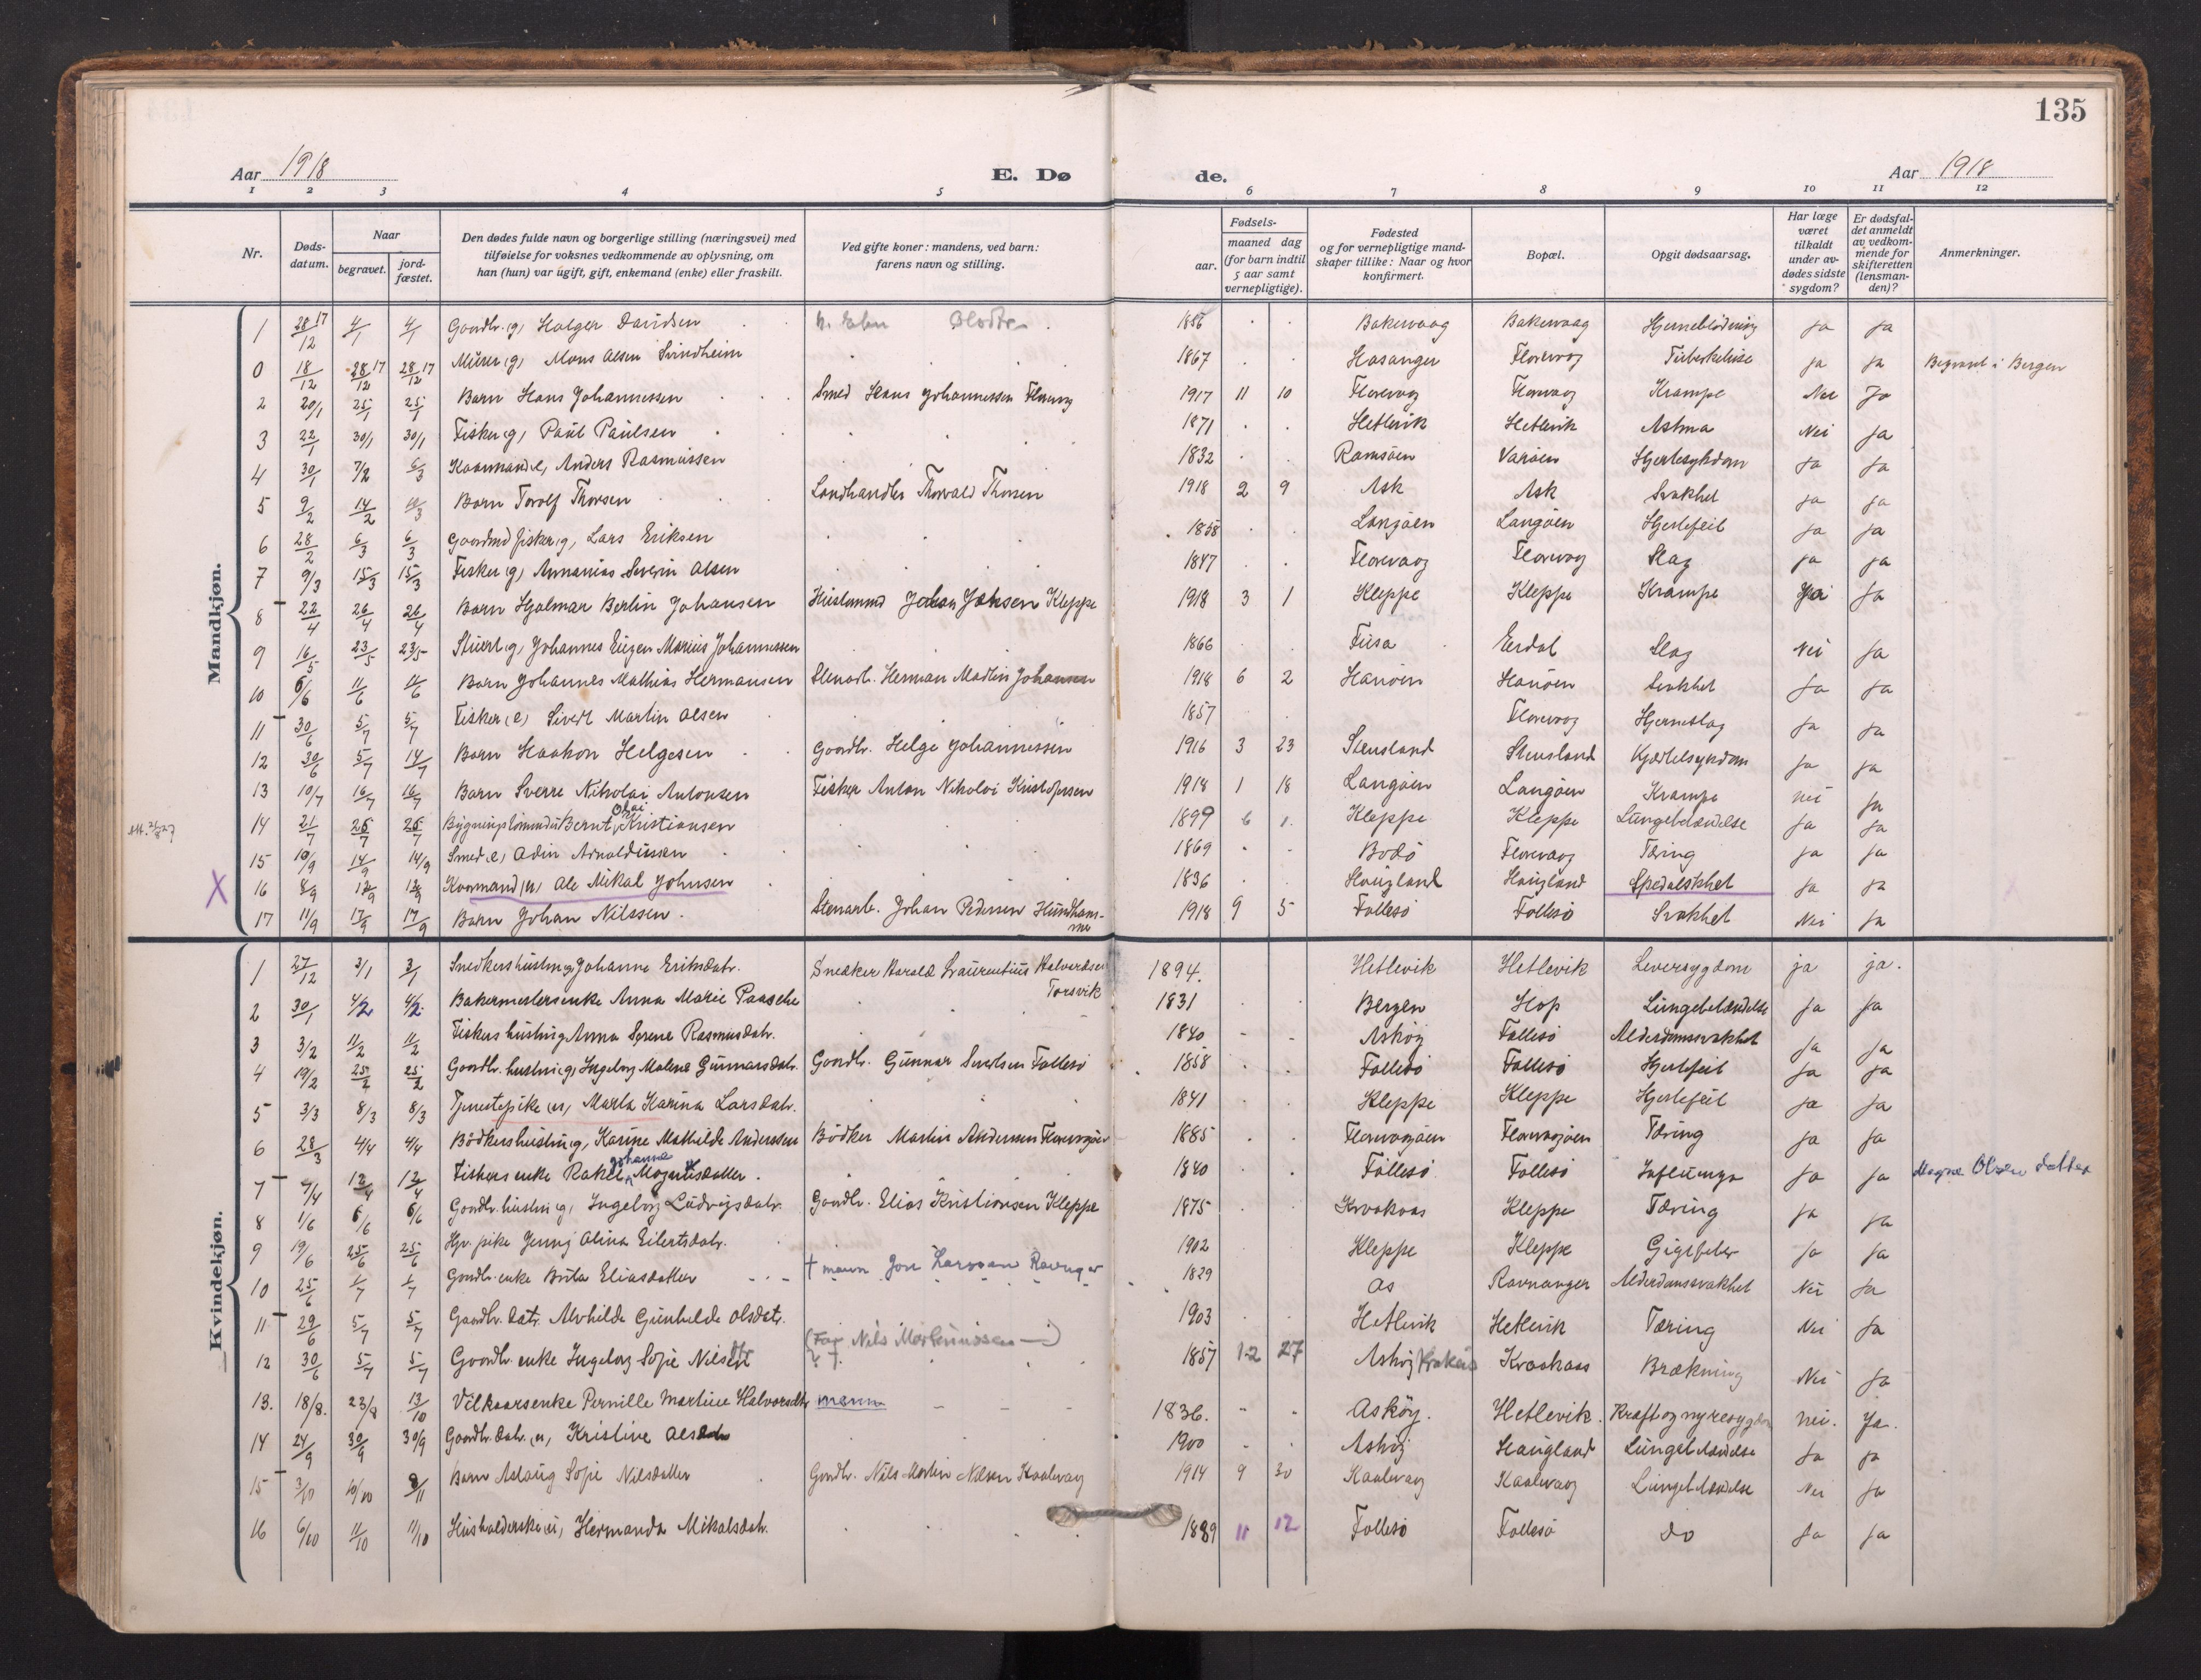 135
Aar 1918 E. Dø de. Aar 1918
1 2 3 4 5 6 7 8 9 10 11 12
Nr. Døds-datum. Naar begravet. jord-fæstet. Den dødes fulde navn og borgerlige stilling (næringsvei) med tilføielse for voksnes vedkommende av oplysning, om han (hun) var ugift, gift, enkemand (enke) eller fraskilt. Ved gifte koner: mandens, ved barn: farens navn og stilling. Fødsels- aar. maaned dag (for barn indtil 5 aar samt vernepligtige). Fødested og for vernepligtige mand-skaper tillike: Naar og hvor konfirmert. Bopæl. Opgit dødsaarsag. Har læge været tilkaldt under av-dødes sidste sygdom? Er dødsfal-det anmeldt av vedkom-mende for skifteretten (lensman-den)? Anmerkninger.
Mandkjøn.
1 28/12 17 4/1 4/1 Gaardbr. (g) Holger Davidsen 1856 Bakervaag Bakervaag Hjerneblødning ja ja
0 18/12 28/12 17 28/12 17 Murer (g) Mons Olsen Svindheim 1867 Hosanger Florvaag Tuberkulose ja ja Begravet i Bergen
2 20/1 25/1 25/1 Barn Hans Johannessen Smed Hans Johannessen Florvag 1917 11 10 Florvag Florvag Krampe Nei Ja
3 22/1 30/1 30/1 Fisker (g) Paul Paulsen 1871 Hetlevik Hetlevik Astma Nei ja
4 30/1 7/2 6/3 Kaarmand (e) Anders Rasmussen 1832 Ramsøen Varøen Hjertesykdom Ja Ja
5 9/2 14/2 10/3 Barn Torolf Thorsen Landhandler Thorvald Thorsen 1918 2 9 Ask Ask Svakhet ja ja
6 28/2 6/3 6/3 Gaardmd fisker (g) Lars Eriksen 1858 Langøen Langøen Hjertefeil ja ja
7 9/3 15/3 15/3 Fisker (g) Annanias Severin Olsen 1847 Florevaag Florevag Slag ja ja
8 22/4 26/4 26/4 Barn Hjalmar Berlin Johansen Husmand Johan Johnsen Kleppe 1918 3 1 Kleppe Kleppe Krampe Ja
9 16/5 23/5 23/5 Stuert (g) Johannes Eugen Marius Johannessen 1866 Fusa Erdal Slag Nei Ja
10 6/6 11/6 11/6 Barn Johannes Mathias Hermansen Stenarb. Herman Madtin Johansen 1918 6 2 Hanøen Hanøen Svakhet Ja Ja
11 30/6 5/7 5/7 Fisker (e) Sivert Martin Olsen 1857 Florevag Hjerneslag Ja Ja
12 30/6 5/7 14/7 Barn Haakon Helgesen Gaardbr. Helge Johannessen 1916 3 23 Stensland Stensland Kjertelsykdom Ja Ja
13 10/7 16/7 16/7 Barn Sverre Nikolai Antonsen Fisker Anton Nikolai Kristofersen 1918 1 18 Langøen Langøen Krampe nei Ja
14 21/7 25/7 25/7 Bygningstømmermand Bernt Olai Kristiansen 1899 6 1 Kleppe Kleppe Lungebetændelse Ja Ja
15 10/9 14/9 14/9 Smed (e) Odin Arnoldussen 1869 Bodø Florevaag Tæring ja ja
X 16 8/9 12/9 12/9 Kaarmand (u) Ole Mikal Johnsen 1836 Haugland Haugland Spedalskhet ja ja
17 11/9 17/9 17/9 Barn Johan Nilssen. Stenarb. Johan Pedersen 1918 9 5 Follesø Follesø Svakhet Nei Ja
Kvindekjøn.
1 27/12 3/1 3/1 Snedkershustru (g) Johanne Eriksdatr. Snedker Harald Laurentius Halvorsen Torsvik 1894. Hetlevik Hetlevik Leversygdom ja ja.
2 30/1 4/2 4/2 Bakermestersenke Anna Marie Paasche 1831 Bergen Hop Lungebetændelse Ja Ja
3 3/2 11/2 11/2 Fiskers hustru g Anna Serene Rasmusdatr. 1840 Askøy Follesø Alderdomssvakhet Ja Ja
4 19/2 25/2 25/2 Gaardbr. hustru (g) Ingeborg Malene Gunnarsdatr. Gaardbr. Gunnar Follesø 1858 Follesø Follesø Hjertefeil Ja Ja
5 3/3 8/3 8/3 Tjenestepike (u) Marta Karina Larsdatr. 1841 Kleppe Kleppe Hjertefeil Ja Ja
6 28/3 4/4 4/4 Bødkershustru (g) Karine Mathilde Anderssen Bødker Martin Andersen Florvagøen 1885 Florvagøen Florvagøen Tæring Ja Ja
7 7/4 12/4 12/4 Fiskers enke Rakel Johanne Magnusdatter. 1840 Follesø Follesø Influenza Ja Ja Magne Olsen datter
8 1/6 6/6 6/6 Gaardbr. hustru (g) Ingeborg Ludvigsdatr. Gaardbr. Elias Kristiansen Kleppe 1875 Kraakaas Kleppe Tæring Ja Ja
9 19/6 25/6 25/6 Hjv. pike Jenny Alina Eilertsdatr. 1902 Kleppe Kleppe Gigtfeber Ja Ja
10 25/6 1/7 1/7 Gaardbr. enke Brita Eliasdatter † mann Jon Larssen 1829 Os Ravnanger Alderdomssvakhet Nei Ja
11 29/6 5/7 5/7 Gaardbr. datr. Alvhilde Gunhilde Olsdatr. 1903 Hetlevik Hetlevik Tæring Nei Ja
12 30/6 5/7 5/7 Gaardbr. enke Ingeborg Sofie Nilsdtr (Far Nils Mortenussen) 1857 12 27 Askøy Krakaas Kraakaas Brækning Nei Ja
13. 18/8. 23/8 13/10 Vilkaarsenke Pernille Martine Halvorsdtr mann 1836. Askøy. Hetlevik. Kræft og nyresygdom nei. Ja.
14 24/9 30/9 30/9 Gaardbr. datr. (u) Kristine Olsdatr 1900 Askøy Haugland Lungebetændelse Ja Ja
15 3/10 10/10 Barn Aslaug Sofie Nilsdatter Gaardbr. Nils Martin Nilsen Kaalevag 1914 9 30 Kaalevag Kaalevaag Lungebetændelse Nei Ja
16 6/10 11/10 11/10 Husholderske (u) Hermanda Mikalsdatr. 1889 11 12 Follesø Follesø do Ja Ja